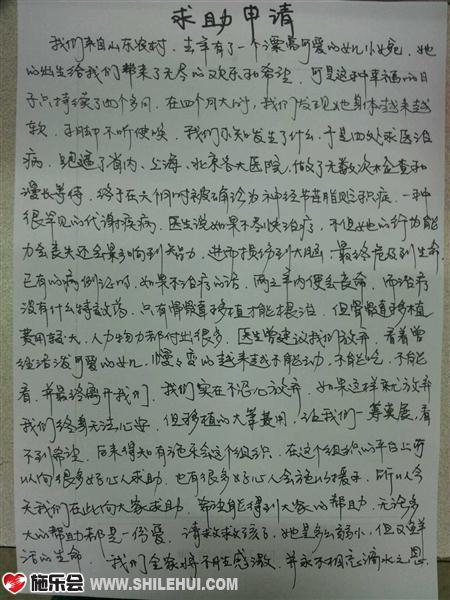 求助申请
我们来自山东农村，去年有了一个漂亮可爱的女儿小婉，她
的出生给我们带来了无尽的欢乐和希望，可是这种幸福的日
子只持续了四个多月，在四个月大时，我们发现她身体越来越
软，手脚不听使唤，我们不知发生了什么，于是四处求医治
病，跑遍了省内、上海、北京各大医院，做了无数次大检查和
漫长等待，终于在六個时被确诊为神经节苷脂贮积症，一种
很罕见的代谢疾病，医生说如果不尽快治疗，不但她的行为能
力会丧失还会影响到智力，进而损伤到大脑，最终危及到生命，
已有的病例证明，如果不治疗的话，两三年内便会丧命，而治疗
没有什么特效药，只有骨髓移植才能根治，但骨髓移植
费用较大，人力物力都付出很多，医生曾建议我们放弃，看着曾
经活泼可爱的女儿，慢慢变的越来越不能动，不能吃，不能
看，并最终离开我们，我们实在不忍心放弃，如果这样就放弃
我们终身无法心安，但移植的大笔费用，让我们一筹莫展，看
不到希望，后来得知有施乐会这个组织，在这个组织的平台上可
以向很多好心人求助，也有很多好心人会施以援手，所以今
天我们在此向大家求助，希望能得到大家的帮助，无论多
大的帮助都是一份爱，请救救孩子，她是多么弱小，但又是鲜
活的生命，我们全家将不胜感激，并永不相忘滴水之恩
施乐会
WWW.SHILEHUI.COM